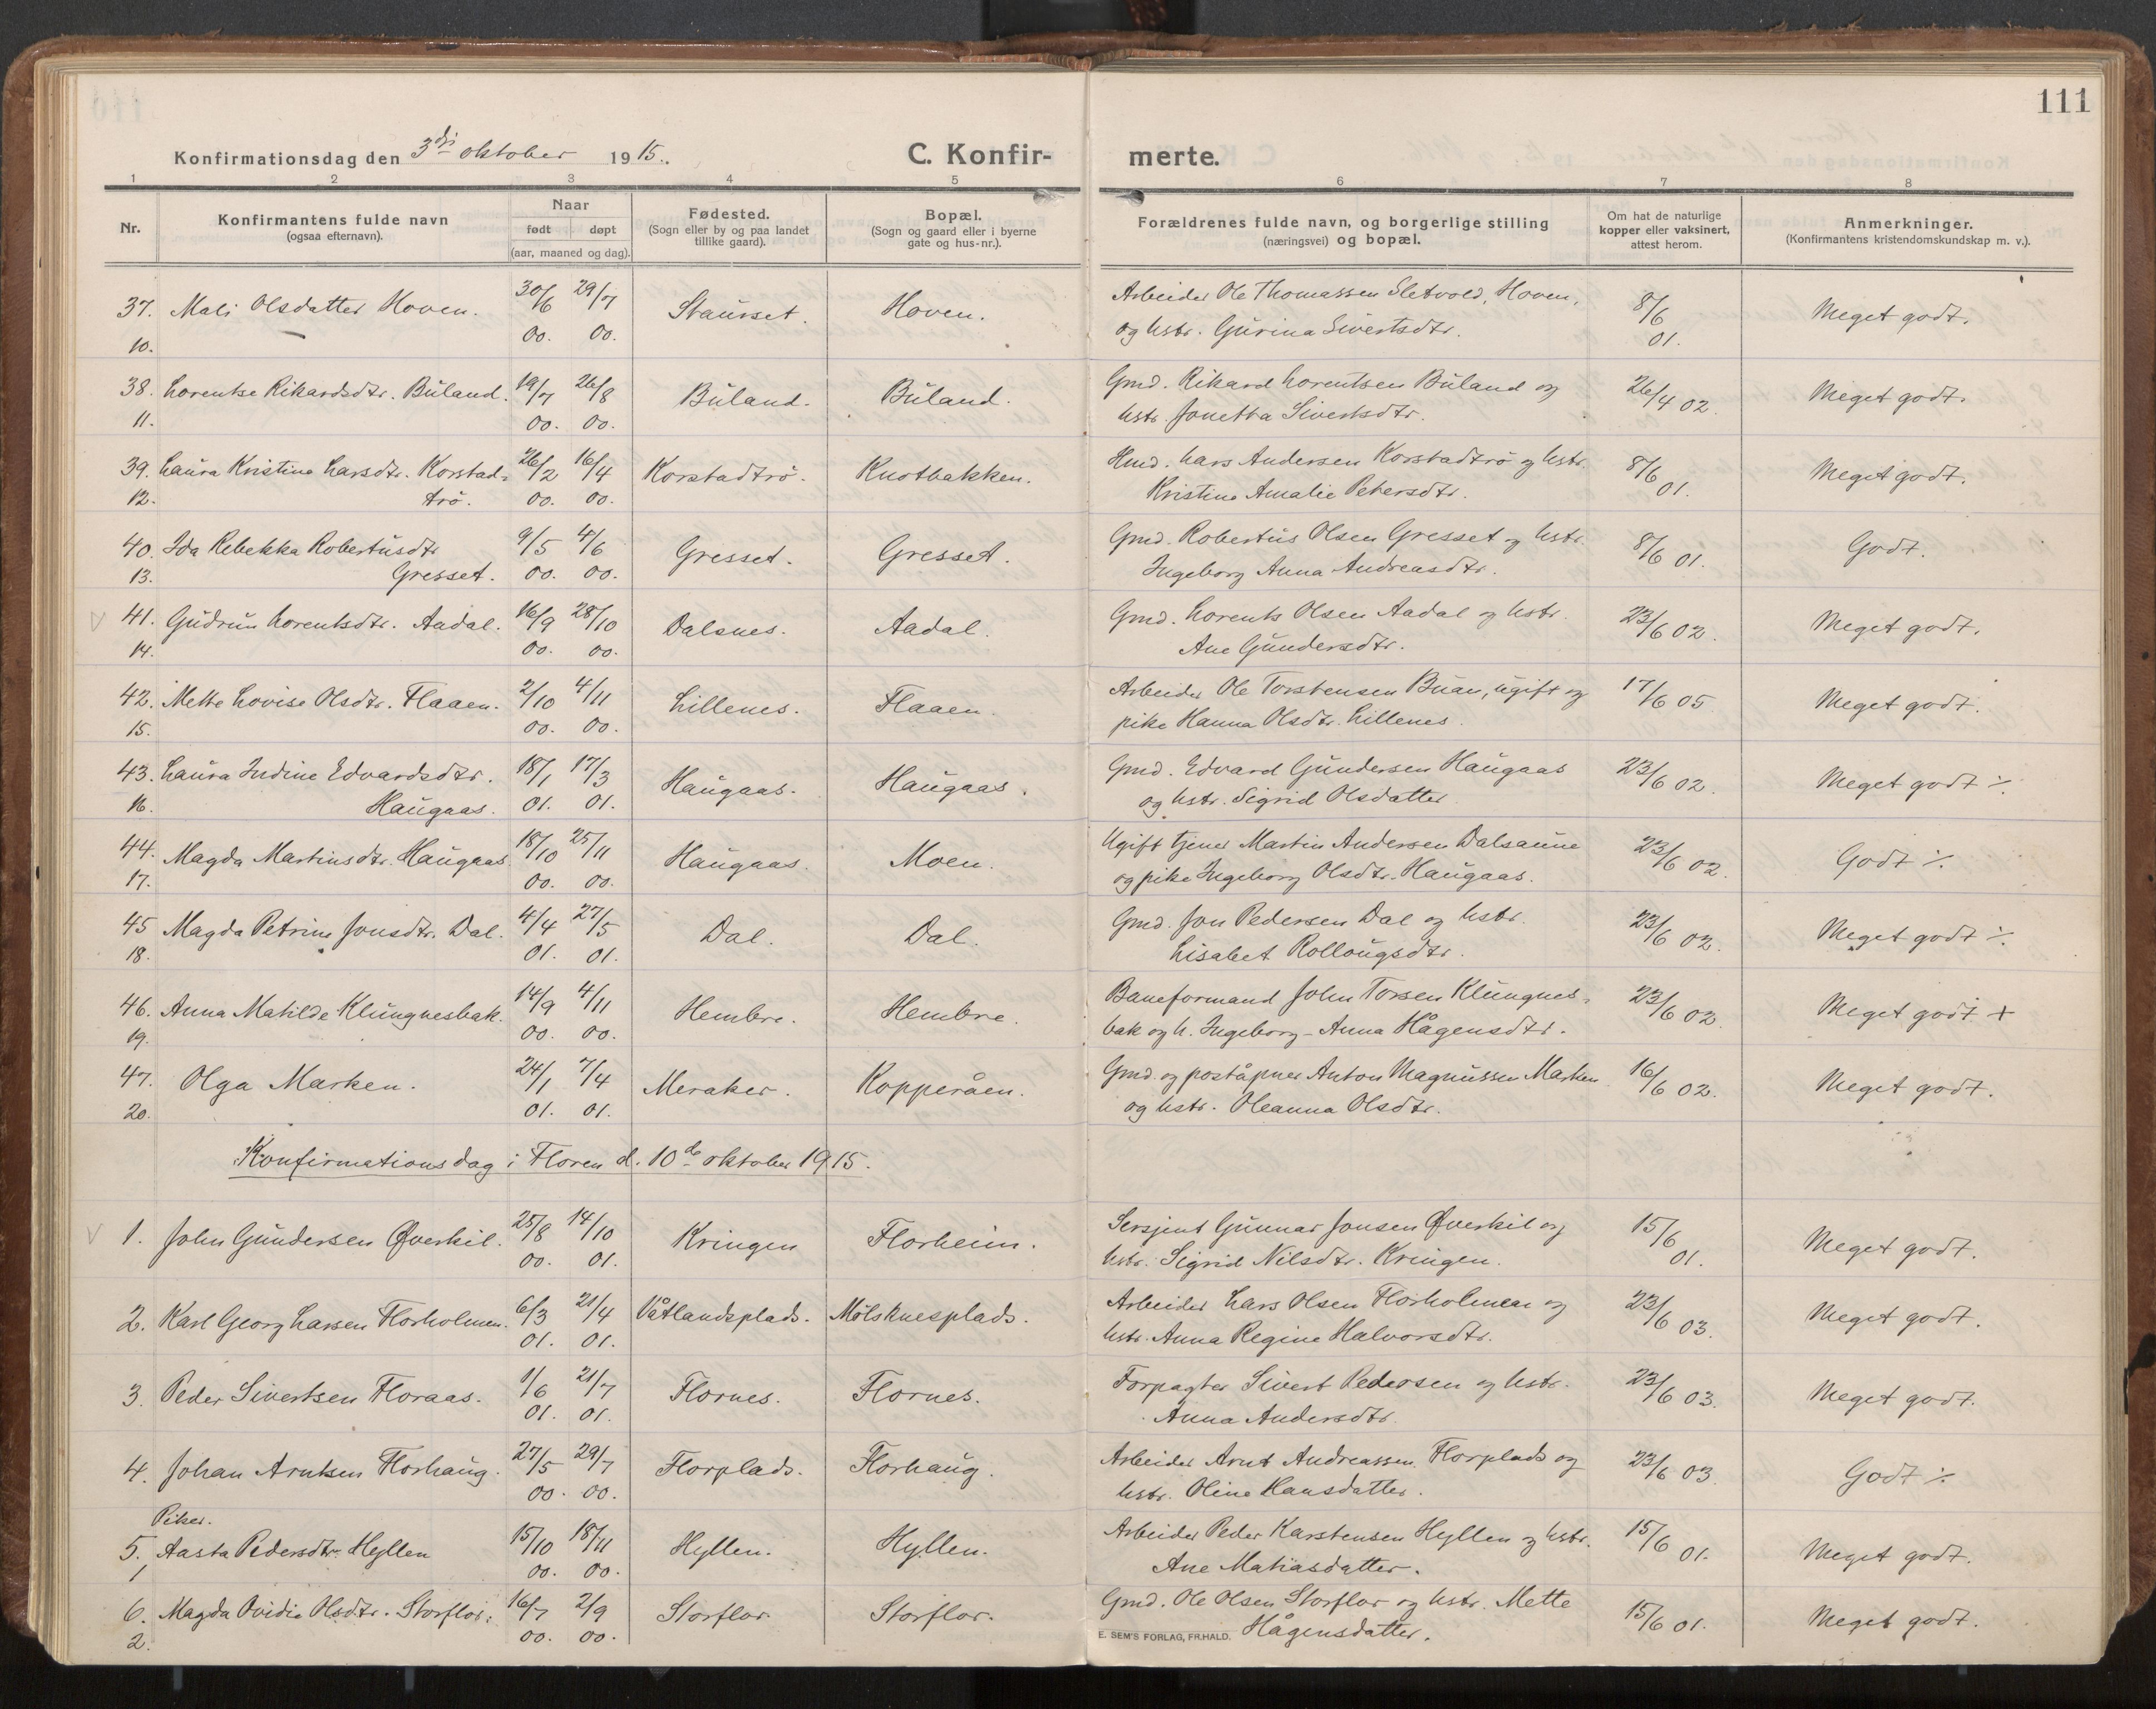 111
Konfirmationsdag den 3die oktober 1915.
C. Konfir-
merte.
1 2 3 4 5 6 7 8
Nr.
Konfirmantens fulde navn
(ogsaa efternavn).
Naar
født døpt
(aar, maaned og dag).
Fødested.
(Sogn eller by og paa landet
tillike gaard).
Bopæl.
(Sogn og gaard eller i byerne
gate og hus-nr.).
Forældrenes fulde navn, og borgerlige stilling
(næringsvei) og bopæl.
Om hat de naturlige
kopper eller vaksinert,
attest herom.
Anmerkninger.
(Konfirmantens kristendomskundskap m. v.).
37. Mali Olsdatter Hoven. 30/6 29/7 Staurset. Hoven. Arbeider Ole Thomassen Sletvold, Hoven, 8/6 Meget godt.
10. 00. 00. og hstr. Gurina Sivertsdtr. 01.
38. Lorentse Rikardsdtr. Buland. 19/7 26/8 Buland. Buland. Gmd. Rikard Lorentsen Buland og 26/4 02. Meget godt.
11. 00. 00. hstr. Jonetta Sivertsdtr.
39. Laura Kristine Larsdtr. Korstad- 26/2 16/4 Korstadtrö. Knotbakken. Hmd. Lars Andersen Korstadtrö og hstr. 8/6 Meget godt.
12. trö. 00. 00. Kristine Amalie Petersdtr. 01.
40. Ida Rebekka Robertusdtr 9/5 4/6 Gresset. Gresset. Gmd. Robertus Olsen Gresset og hstr. 8/6 01. Godt.
13. Gresset. 00. 00. Ingeborg Anna Andreasdtr.
V 41. Gudrun Lorentsdtr. Aadal. 16/9 28/10 Dalsnes. Aadal. Gmd. Lorents Olsen Aadal og hstr. 23/6 02. Meget godt.
14. 00. 00. Ane Gundersdtr.
42. Mette Lovise Olsdtr. Flaaen. 2/10 4/11 Lillenes. Flaaen. Arbeider Ole Torstensen Buan, ugift og 17/6 05. Meget godt.
15. 00. 00. pike Hanna Olsdtr. Lillenes.
43. Laura Indine Edvardsdtr. 18/1 17/3 Haugaas. Haugaas. Gmd. Edvard Gundersen Haugaas 23/6 02. Meget godt ⁒
16. Haugaas. 01. 01. og hstr. Sigrid Olsdatter
44. Magda Martinsdtr. Haugaas. 18/10 25/11 Haugaas. Moen. Ugift tjener Martin Andersen Dalsaune 23/6 02. Godt ⁒
17. 00. 00. og pike Ingeborg Olsdtr. Haugaas.
45 Magda Petrine Jonsdtr. Dal. 4/4 27/5 Dal. Dal. Gmd. Jon Pedersen Dal og hstr. 23/6 02. Meget godt ⁒
18. 01. 01. Lisabet Rollougsdtr.
46. Anna Matilde Klungnesbak. 14/9 4/11 Hembre. Hembre. Baneformand John Torsen Klungnes- 23/6 02. Meget godt +
19. 00. 00. bak og h. Ingeborg-Anna Hågensdtr.
47. Olga Marken. 24/1 7/4 Meraker. Kopperåen. Gmd. og poståpner Anton Magnussen Marken 16/6 02. Meget godt.
20. 01. 01. og hstr. Oleanna Olsdtr.
Konfirmationsdag i Floren d. 10de oktober 1915.
V 1. John Gundersen Øverkil. 25/8 14/10 Kringen Florheim. Sersjent Gunnar Jonsen Øverkil og 15/6 Meget godt.
00. 01. hstr. Sigrid Nilsdtr. Kringen. 01.
2. Karl Georg Larsen Florholmen. 6/3 21/4 Våtlandsplads. Mölsknesplads. Arbeider Lars Olsen Florholmen og 23/6 03. Meget godt.
01. 01. hstr. Anna Regine Halvorsdtr.
3. Peder Sivertsen Floraas. 1/6 21/7 Flornes. Flornes. Forpagter Sivert Pedersen og hstr. 23/6 03. Meget godt.
01. 01. Anna Andersdtr.
4. Johan Arntsen Florhaug. 27/5 29/7 Florplads. Florhaug. Arbeider Arnt Andreassen Florplads og 23/6 03. Godt ⁒
00. 00. hstr. Oline Hansdatter.
Piker.
5. Aasta Pedersdtr. Hyllen 15/10 18/11 Hyllen. Hyllen. Arbeider Peder Karstensen Hyllen og hstr. 15/6 01. Meget godt.
1 00. 00. Ane Matiasdatter.
6. Magda Ovidie Olsdtr. Storflor. 16/7 2/9 Storflor. Storflor. Gmd. Ole Olsen Storflor og hstr. Mette 15/6 01. Meget godt.
2. 00. 00. Hågensdatter.
E. SEM'S FORLAG, FR.HALD.